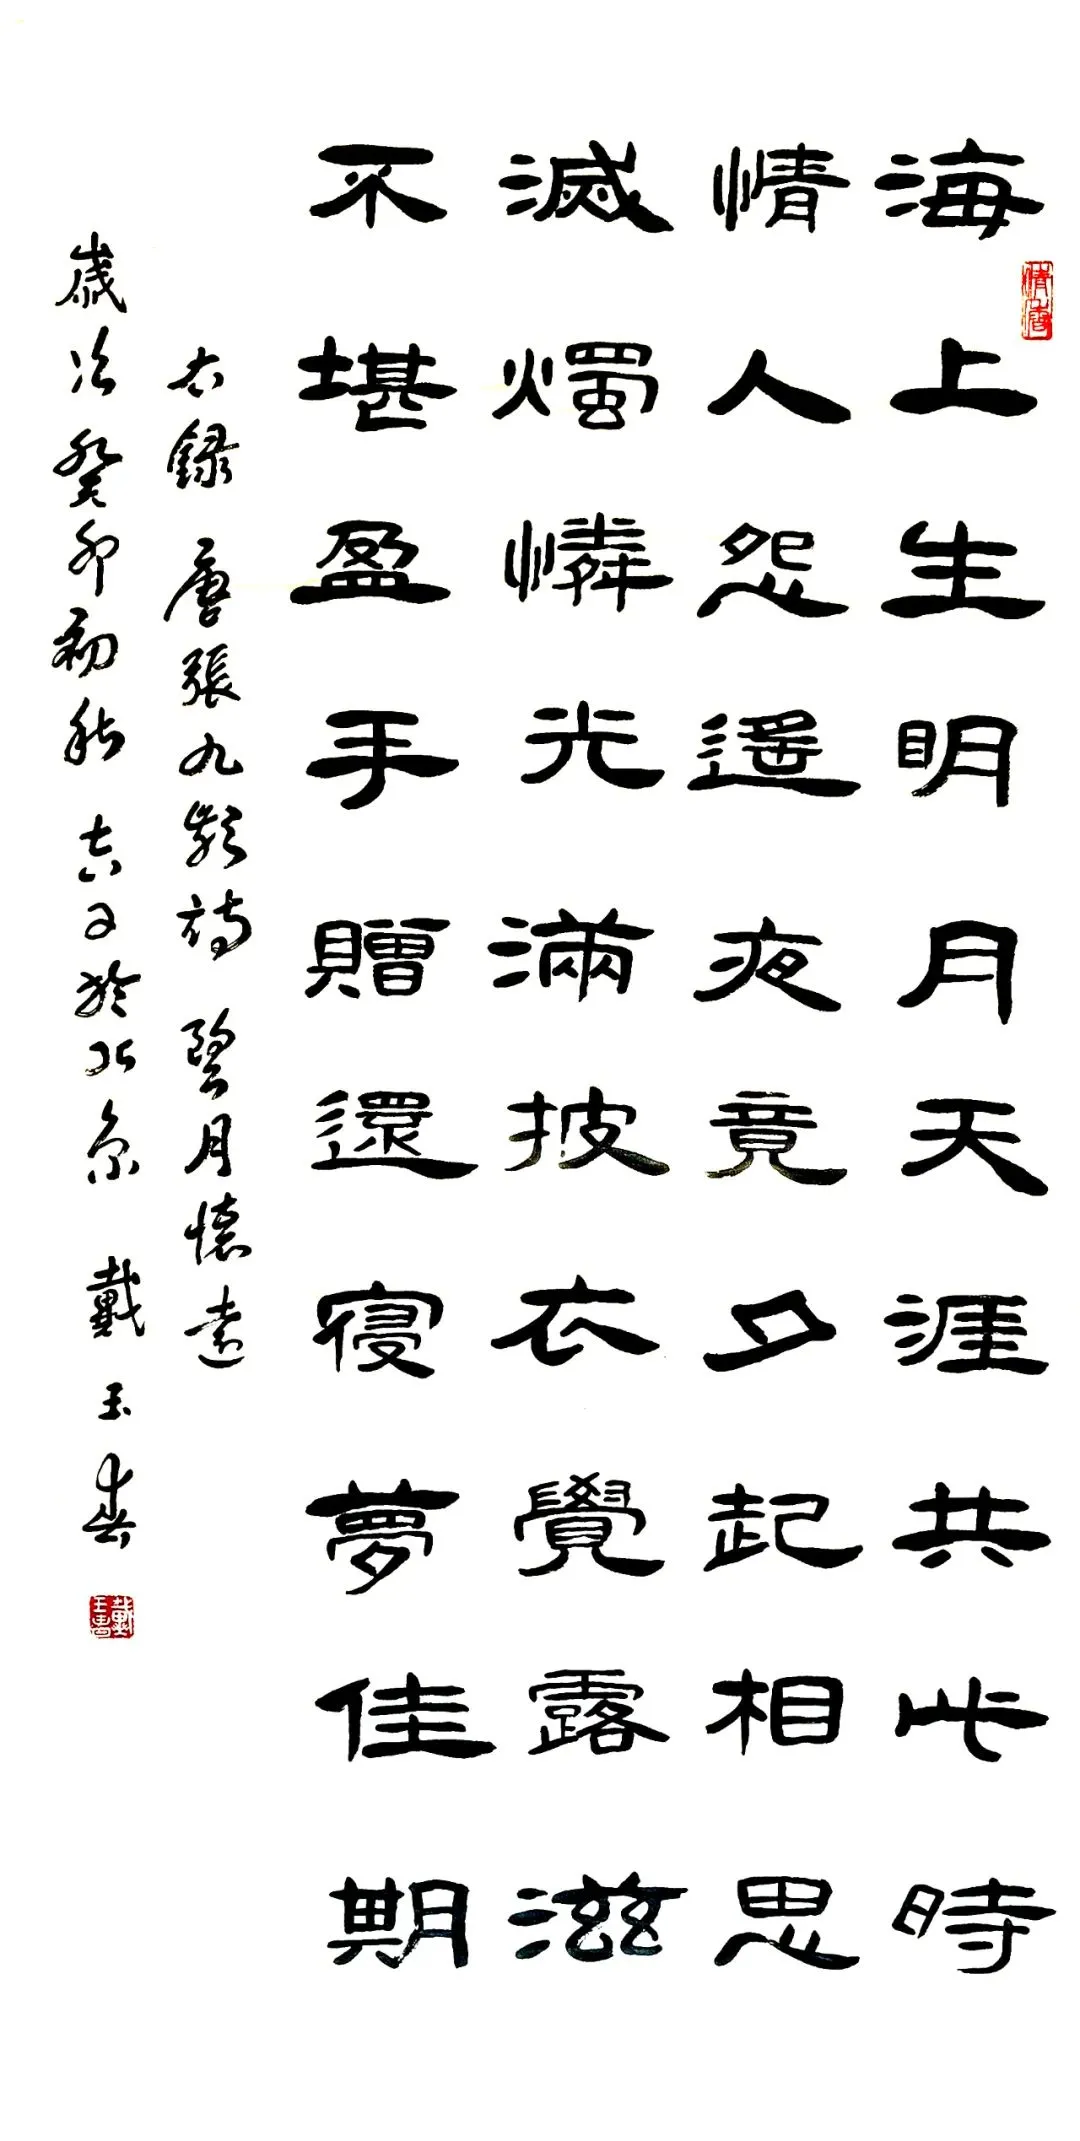 海上生明月天涯共此時
情人怨遙夜竟夕起相思
滅燭憐光滿披衣覺露滋
不堪盈手贈還寢夢佳期
右錄唐張九齡詩望月懷遠
歲次癸卯初秋吉日於北京戴玉春